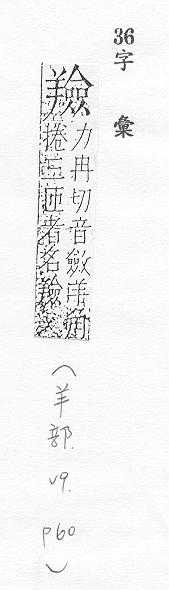 36字 彙
羷
力冉切音斂羊角
捲三匝者名羷
(羊部. V9. P60)